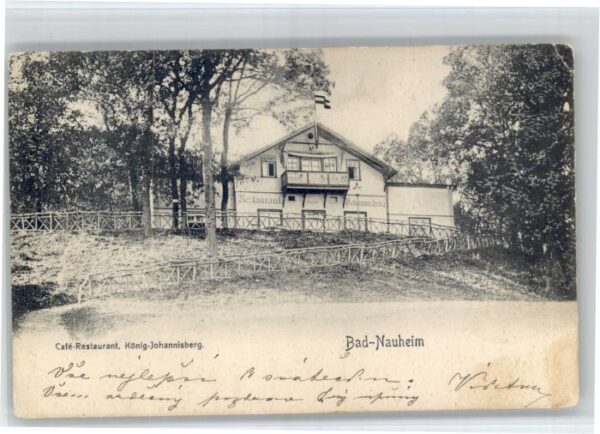 Restaurant Johannisberg
Café-Restaurant, König-Johannisberg.
Bad-Nauheim
Vše nejlepší k svátečním.
Všem srdečný pozdrav